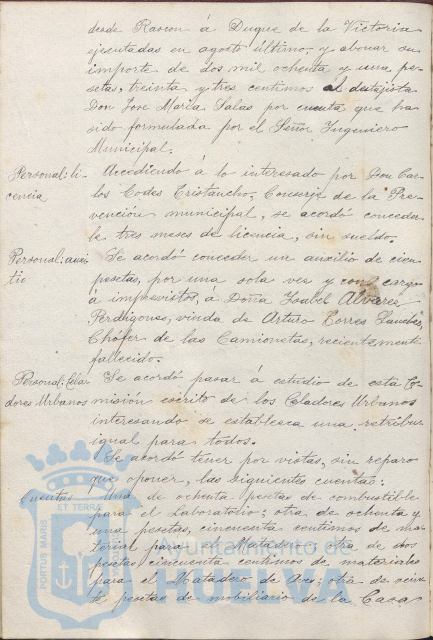 desde Rascon á Duque de la Victoria
ejecutadas en agosto último, y abonar su
importe de dos mil ochenta y una pe-
setas, treinta y tres centimos al destajista
Don Jose Maria Salas por cuenta que ha
sido formulada por el Señor Ingeniero
Municipal.
Personal: li-
cencia
Accediendo á lo interesado por Don Car-
los Cortes Tristancho, Conserje de la Pre-
vención municipal, se acordó conceder-
le tres meses de licencia, sin sueldo.
Personal: auxi-
lio
Se acordó conceder un auxilio de cien
pesetas, por una sola vez y con cargo
a imprevistos, á Doña Ysabel Alvarez
Perdigones, viuda de Arturo Torres Sanchez,
Chófer de las Camionetas, recientemente
fallecido.
Personal: Cela-
dores Urbanos
Se acordó pasar á estudio de esta Co-
misión escrito de los Celadores Urbanos
interesando se establezca una retribu
igual para todos.
Se acordó tener por vistas, sin reparo
que oponer, las siguientes cuentas:
Cuentas
Una de ochenta pesetas de combustible
para el Laboratorio; otra de ochenta y
una pesetas, cincuenta centimos de ma-
terial para el Matadero; otra de dos
pesetas cincuenta centimos de materiales
para el Matadero de Aves; otra de vein-
te pesetas de mobiliario de la Casa
PORTUS MARIS
ET TERRA
Ayuntamiento de
HUELVA